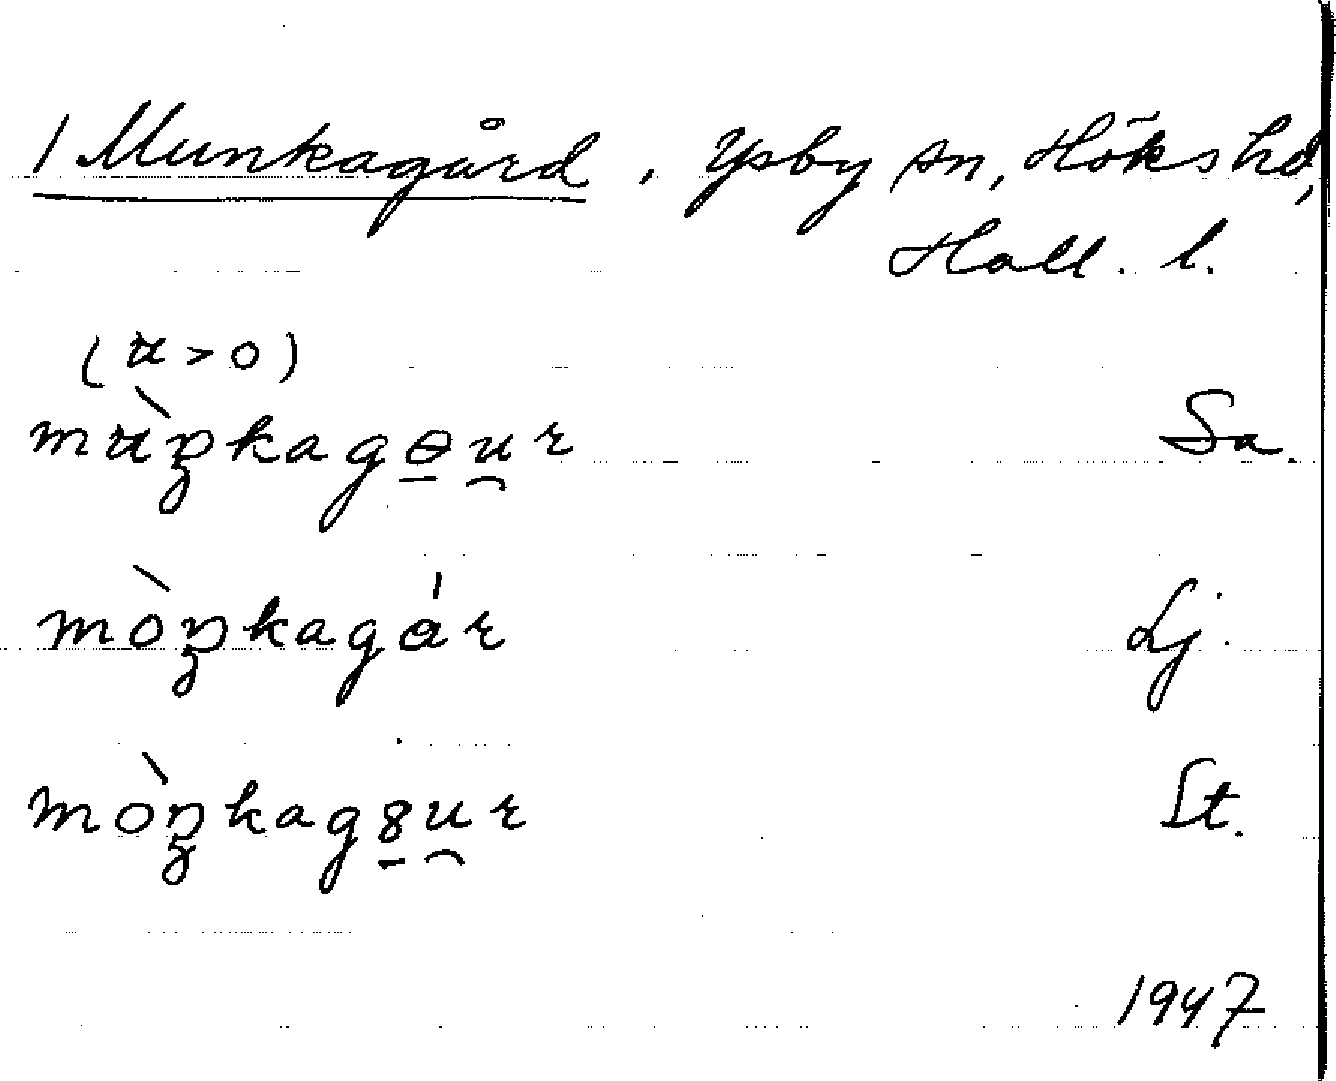 / Munkagård, Ysby sn, Höks hd,
Hall. l.
(u > o)
mu̇̀ŋkagɵu̯r Sa.
mòŋkagár Lj.
mòŋkag8u̯r St.
1947